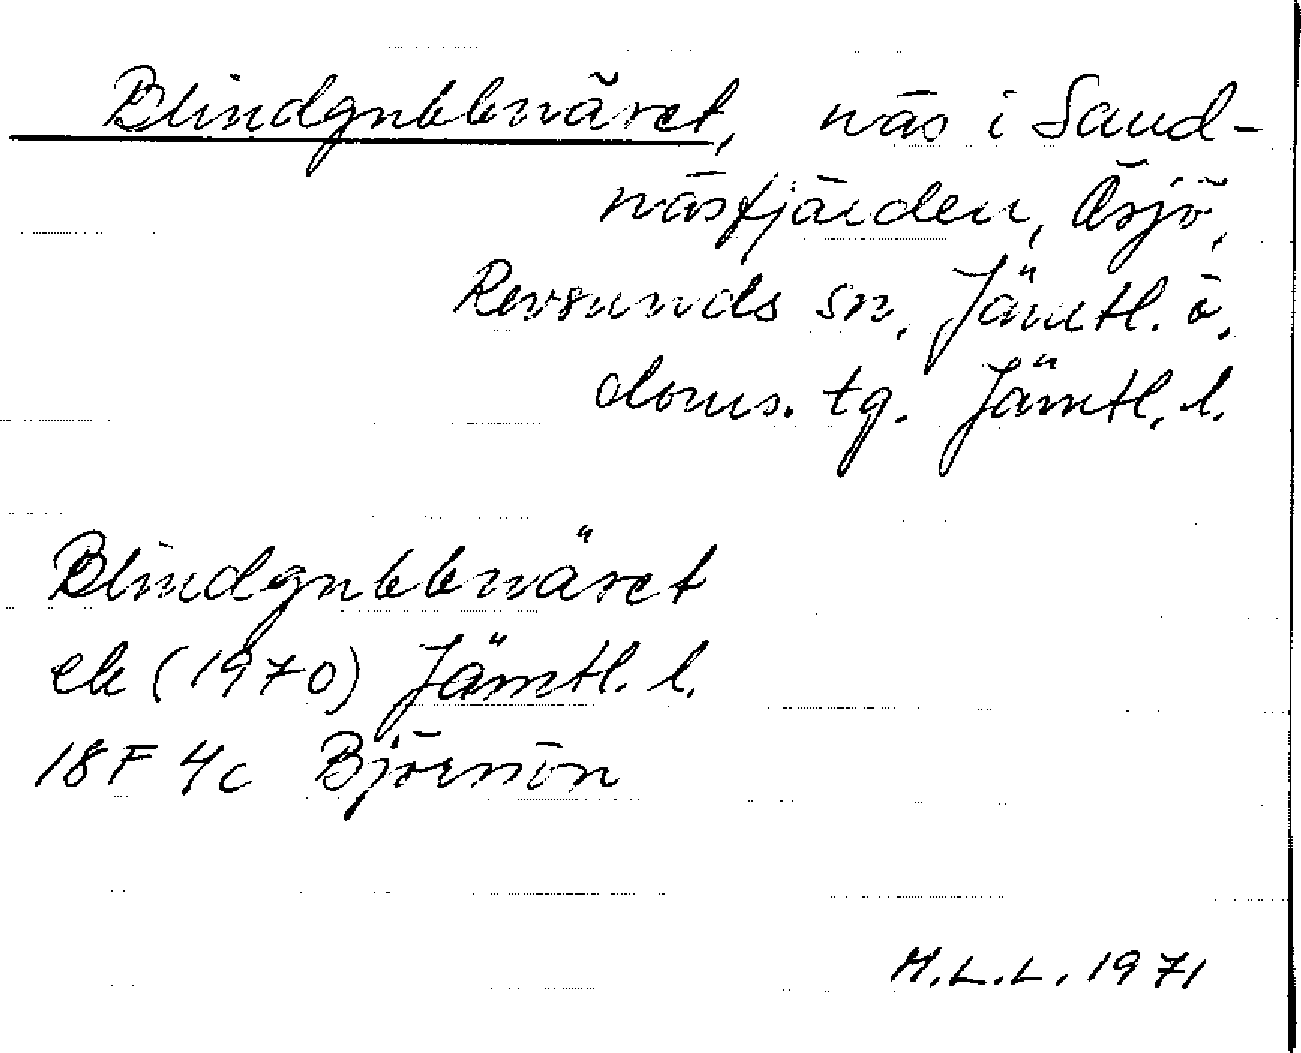 Blindgubbnäset, näs i Sand-
näsfjärden, Ösjö,
Revsunds sn, Jämtl. ö.
doms. tg. Jämtl. l.
Blindgubbnäset
ek (1970) Jämtl. l.
18F 4c Björnön
M.L.L. 1971